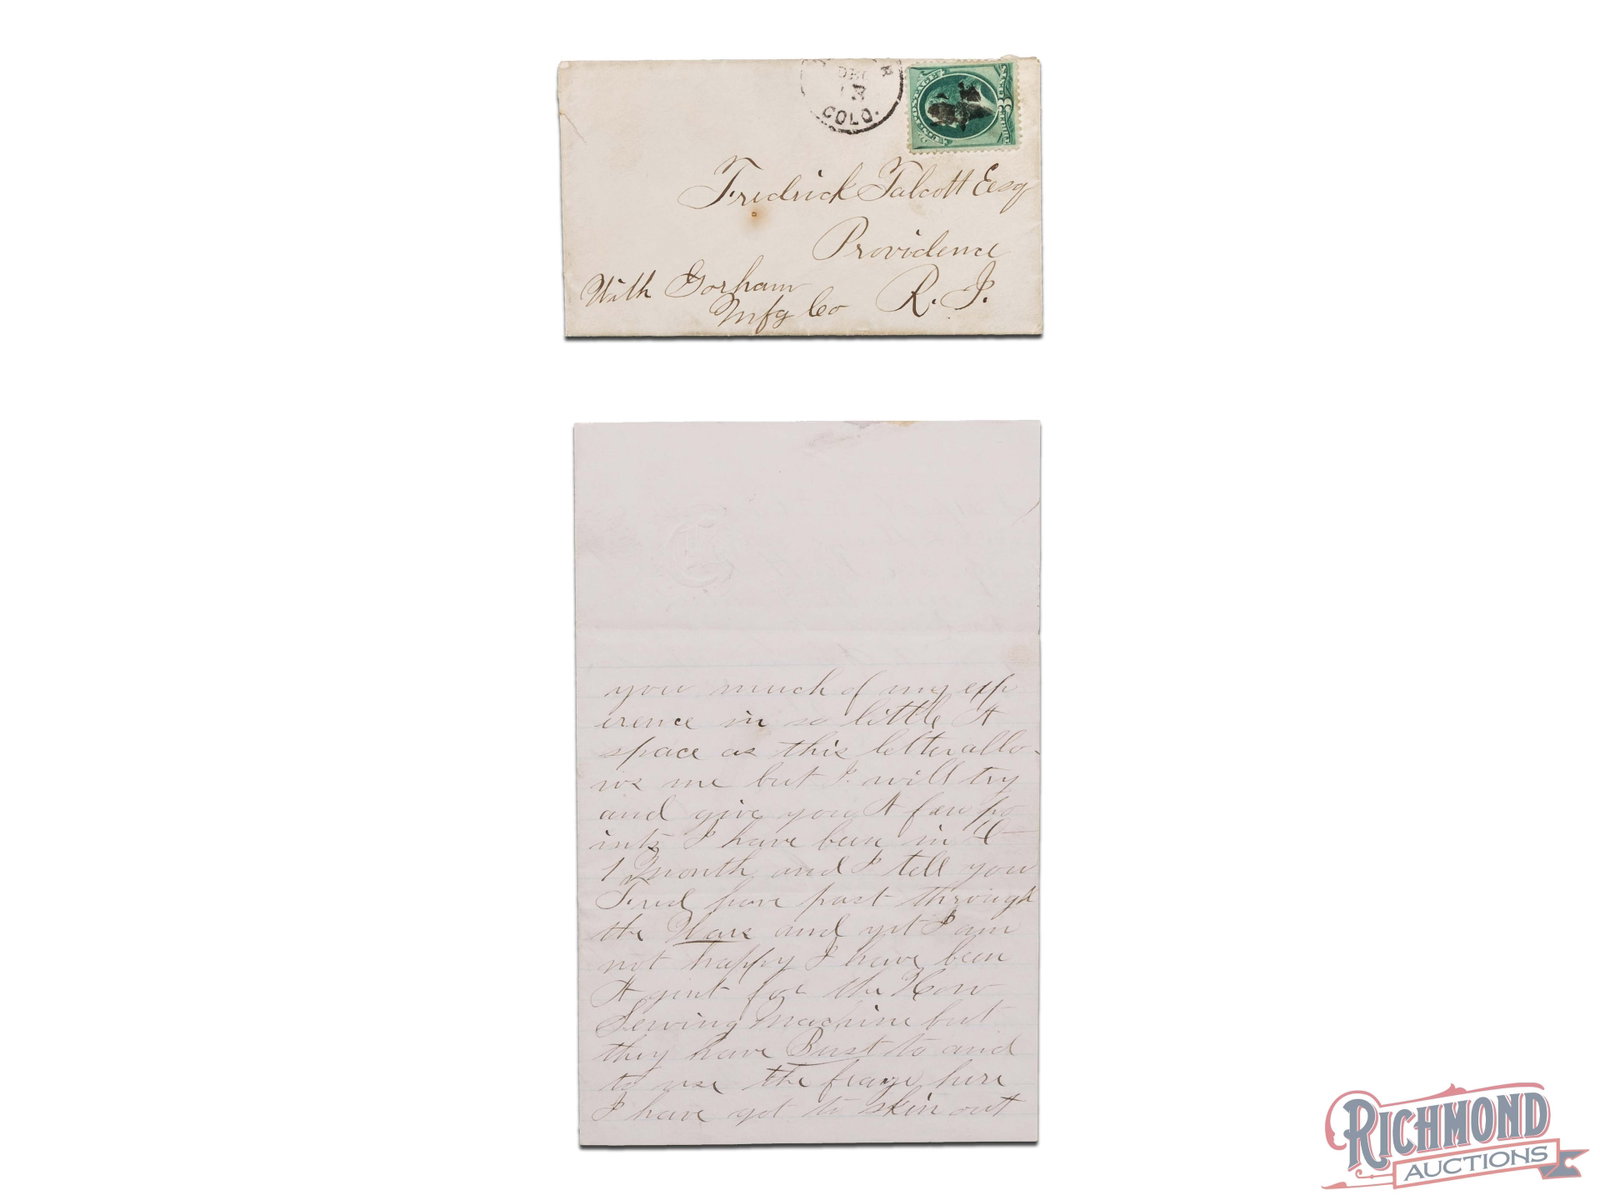 DEC
COLO.
POSTAGE
3
CENTS
Fredrick Talcott Esq
Providence
R. I.
With Gorham
Mfg Co
you much of my exp
erence in so little A
space as this letter allo-
ws me but I will try
and give you A few po
ints I have been in
1 Month and I tell you
Fred have past through
the Wars and yet I am
not happy I have been
Agent for the How
Sewing Machine but
they have Bust to and
to use the frase here
I have got to skin out
RICHMOND
AUCTIONS